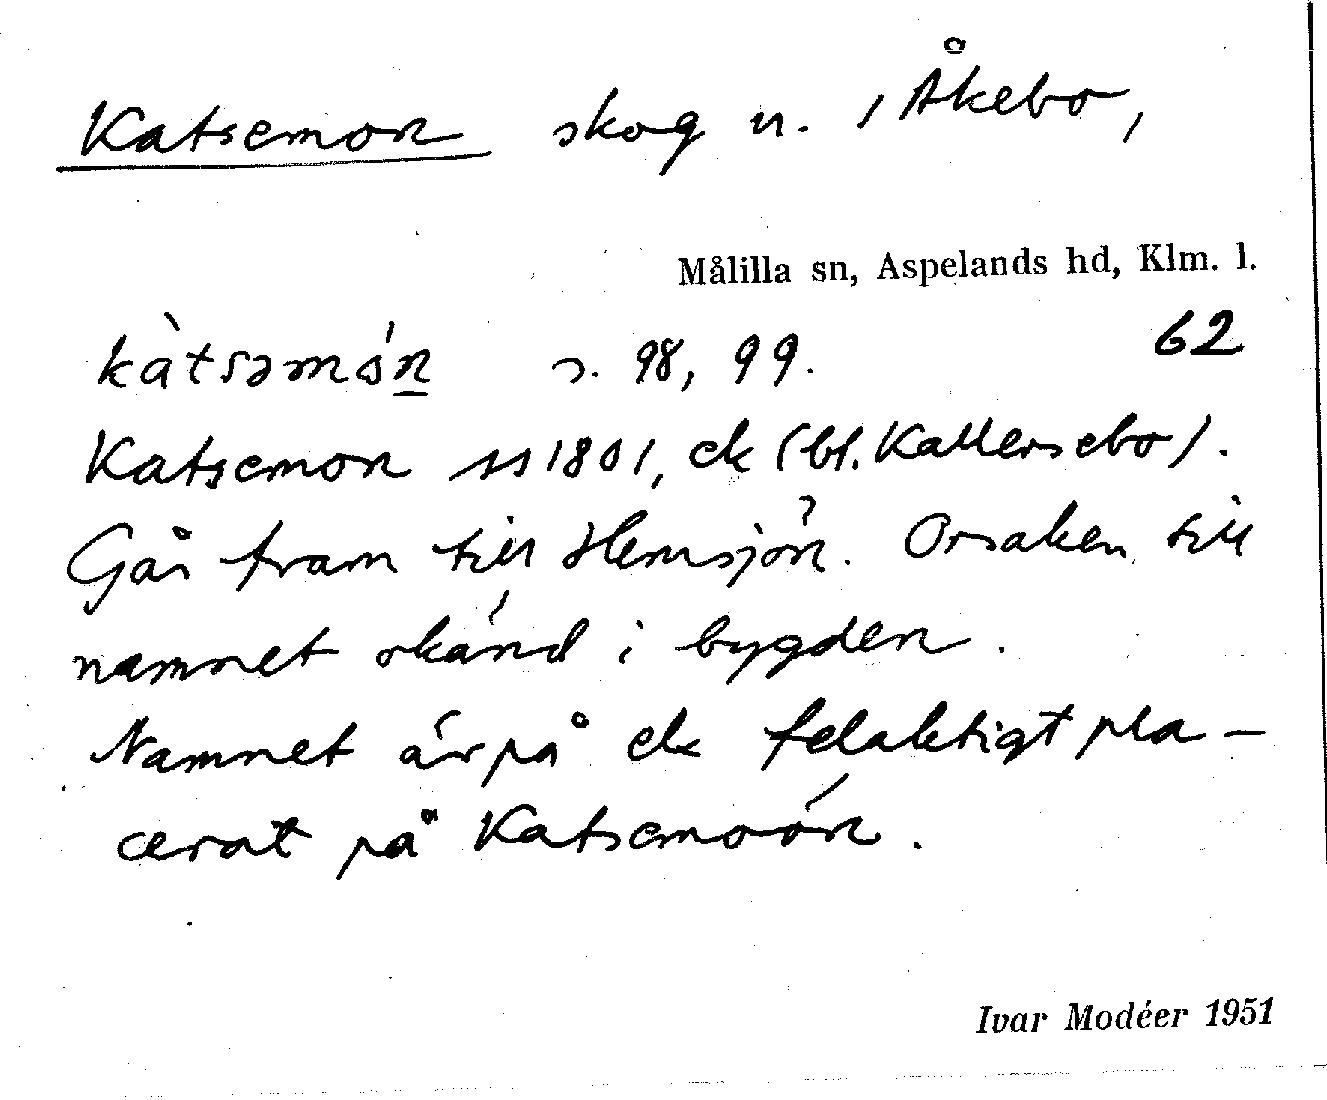 Katsemon skog n. / Åkebo,
Målilla sn, Aspelands hd, Klm. l.
62
kàtsəmón s. 98, 99.
Katsemon ss 1801, ek (bl. Kallersebo).
Går fram till Hemsjön. Orsaken till
namnet okänd i bygden.
Namnet är på ek felaktigt pla-
cerat på Katsemoön.
Ivar Modéer 1951